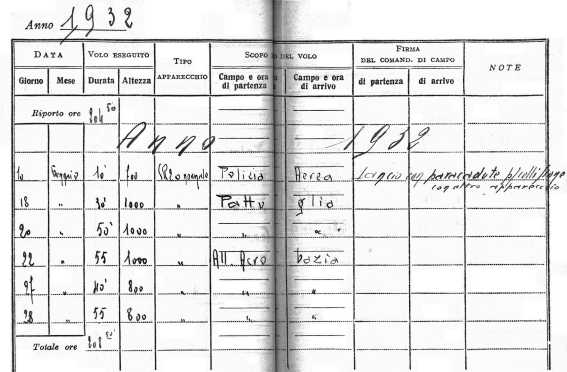 Anno 1932
DATA VOLO ESEGUITO TIPO APPARECCHIO SCOPO DEL VOLO FIRMA DEL COMAND. DI CAMPO NOTE
Giorno Mese Durata Altezza Campo e ora di partenza Campo e ora di arrivo di partenza di arrivo
Riporto ore 304 50
Anno 1932
10 10' 700 Polizia Aerea Lancio con paracadute
con altro apparecchio
18 " 30' 1000 " Pattu glia
20 " 50' 1000 " " "
22 " 55 1000 " All. Acro bazia
27 " 40' 800 " " "
28 " 55 800 " " "
Totale ore 308